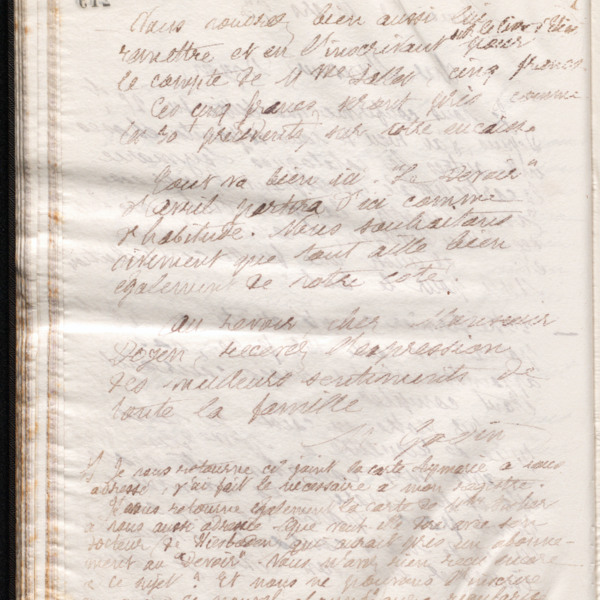 Vous voudrez bien aussi lui
remettre et en l'inscrivant sur le livre d'Edm pour
le compte de Mme Dallet, cinq francs.
Ces cinq francs seront pris comme
les 30 présents, sur votre encaisse.
Tout va bien ici. "Le Devoir"
d'avril partira d'ici comme
d'habitude. Nous souhaitons
vivement que tout aille bien
également de votre côté.
Au revoir cher Monsieur
Doyen recevez l'expression
des meilleurs sentiments de
toute la famille
Godin
Je vous retourne ci-joint la carte à vous
adressé, j'ai fait le nécessaire à mon registre.
Je vous retourne également la carte de
à vous aussi adressée. Que veut elle dire avec son
docteur de Wiesbaden qui aurait pris un abonne-
ment au "Devoir". Nous n'avons rien reçu encore
à ce sujet? Et nous ne pouvons l'inscrire